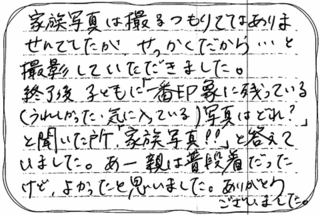 家族写真は撮るつもりではありま
せんでしたが、せっかくだから…と
撮影していただきました。
終了後 子どもに「一番印象に残っている
(うれしかった、気に入っている)写真はどれ?」
と聞いた所「家族写真!!」と答えて
いました。あー親は普段着だった
けど、よかったと思いました。ありがとう
ございました。